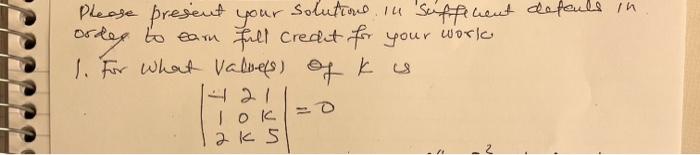 Please present your solutions in sufficient details in
order to earn full credit for your work
1. For what value(s) of k is
|-1 2 1|
|1 0 k| = 0
|2 k 5|
2